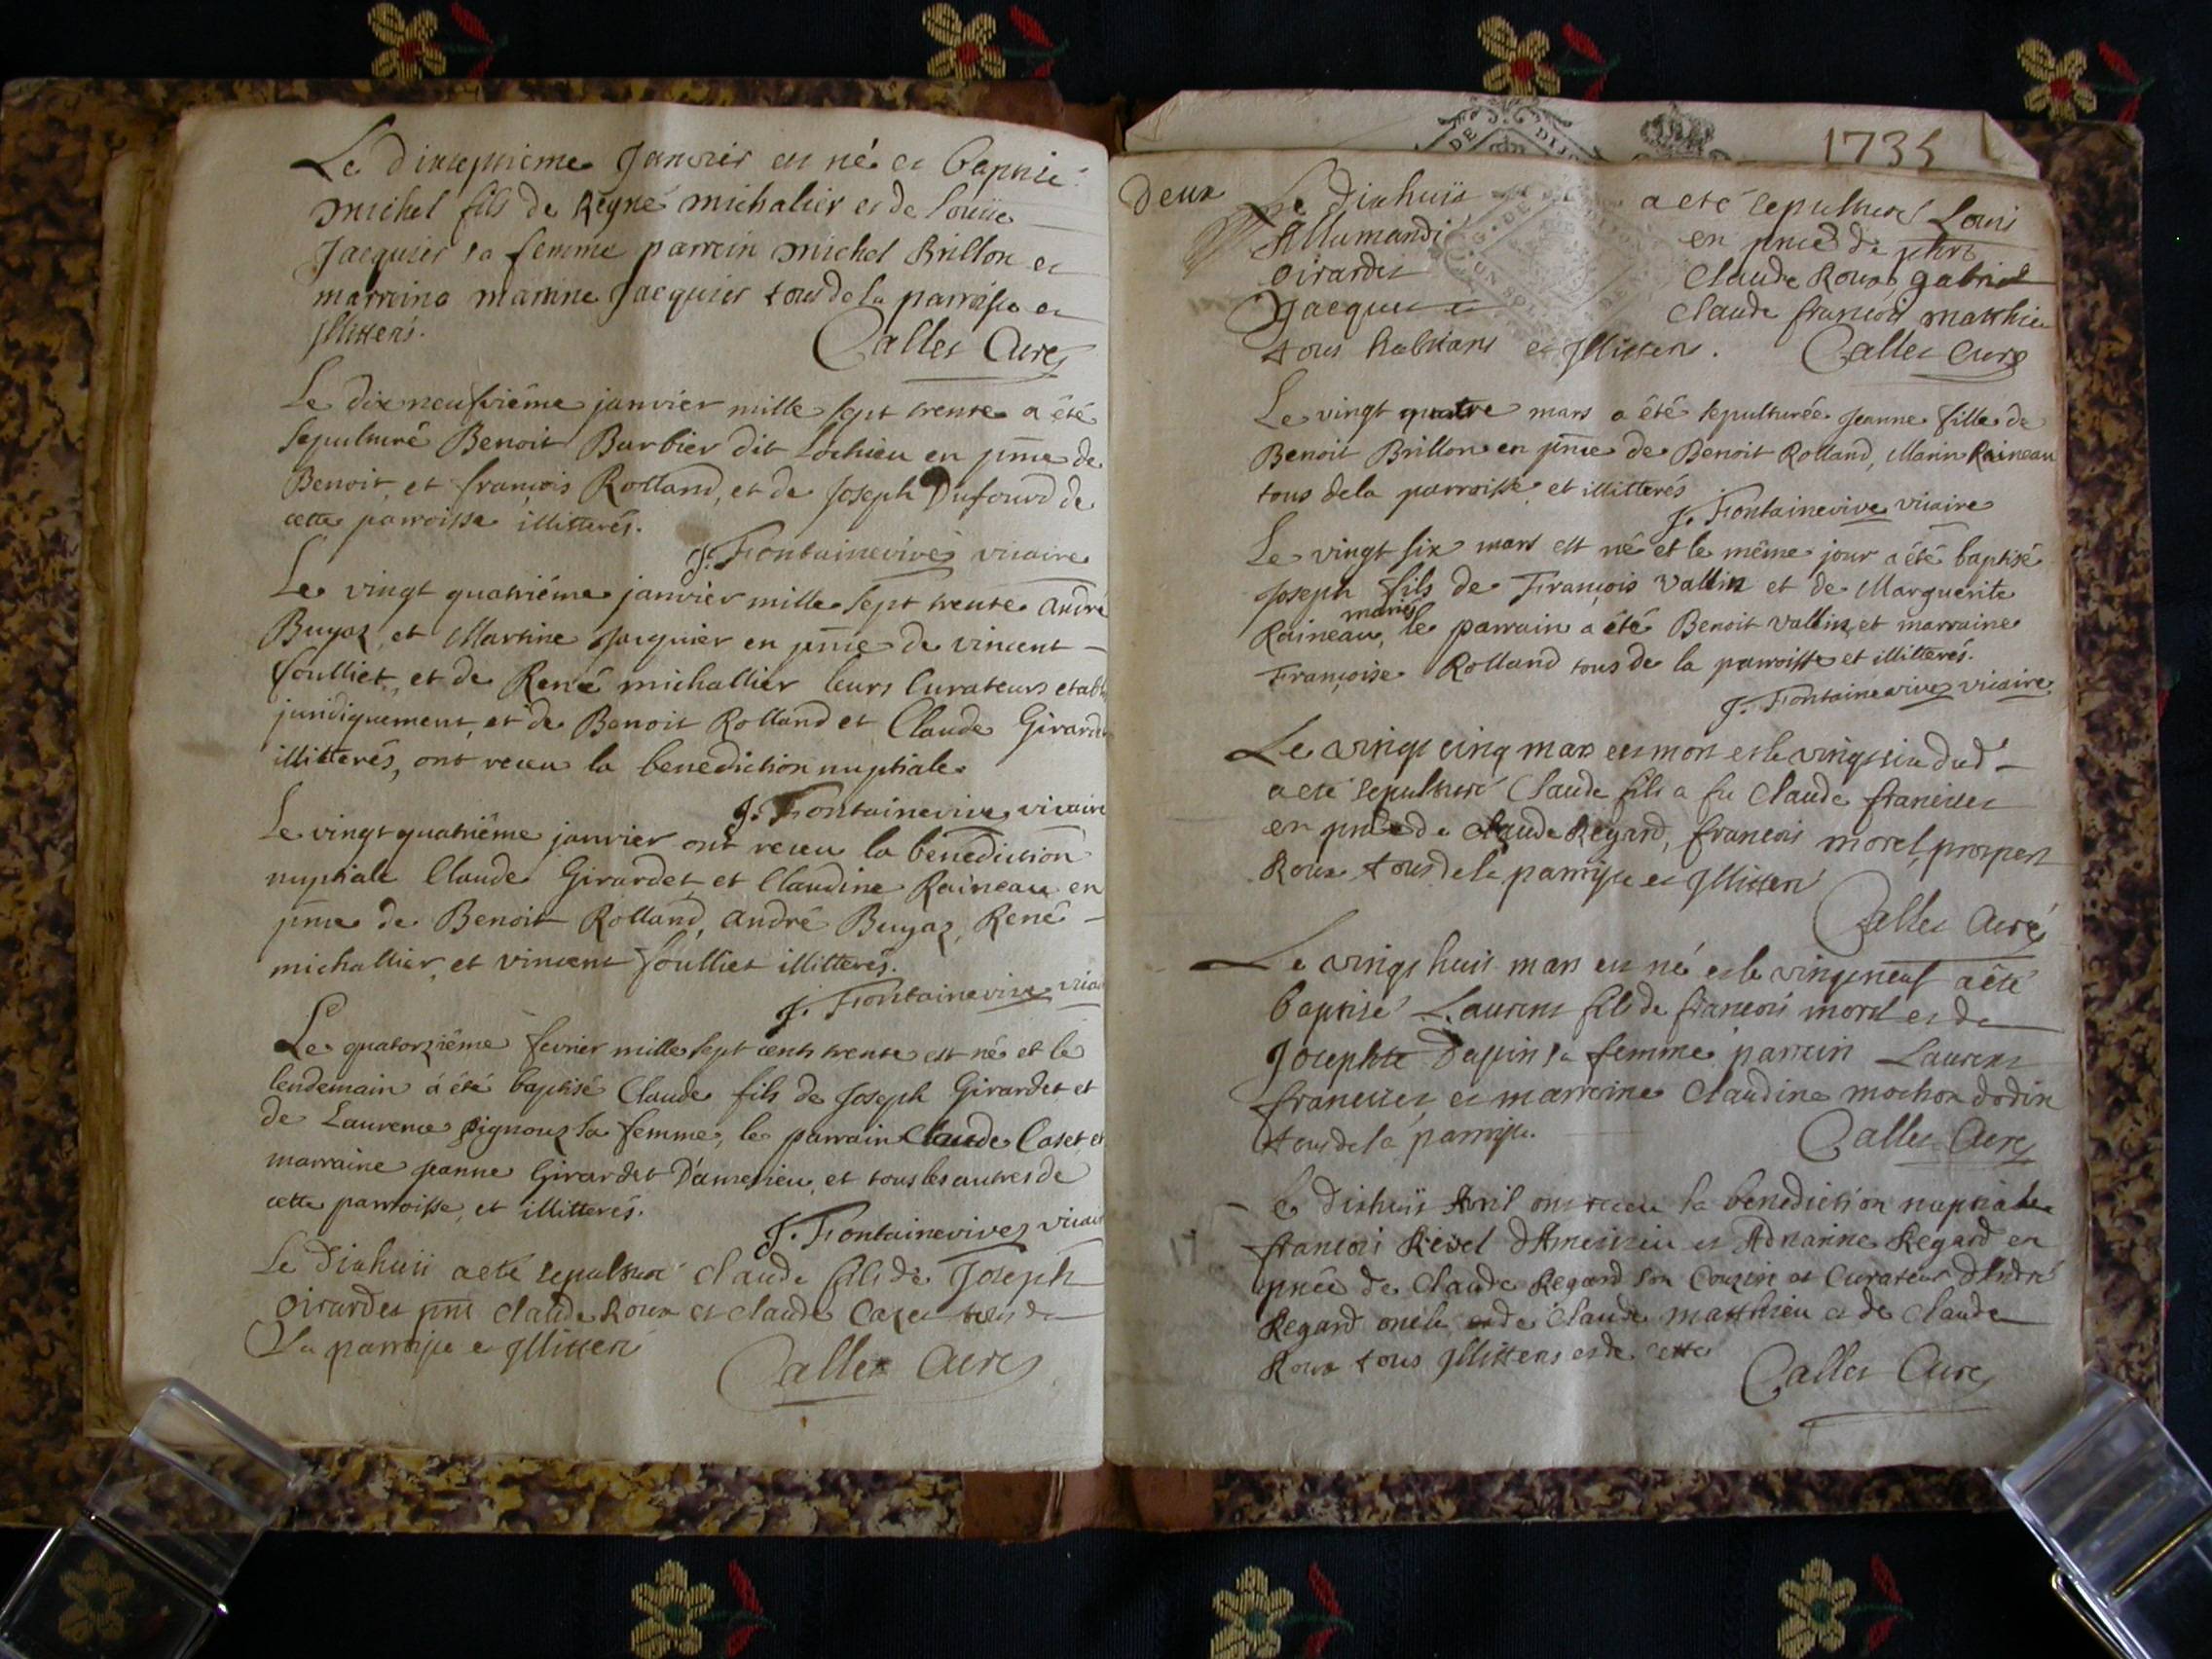 Le dixseptieme Janvier est né et baptisé
michel fils de Regne michalier et de Louise
Jacquier sa femme parrein michel Brillon et
marreine marine Jacquier tous de la parroisse et
Jllitterés.
Callet Curé
Le dixneufviéme janvier mille sept trente a été
sepulturé Benoit Barbier dit Lochieu en pnce de
Benoit, et françois Rolland, et de Joseph Dufourd de
cette parroisse illitterés.
J. Fontainevive vicaire
Le vingt quatriéme janvier mille sept trente André
Bugaz, et Martine Jacquier en pnce de vincent
foulliet, et de René michallier leurs Curateurs etablis
juridiquement, et de Benoit Rolland et Claude Girardet
illitterés, ont receu la benediction nuptiale.
J. Fontainevive vicaire
Le vingt quatriéme janvier ont receu la benediction
nuptiale Claude Girardet, et Claudine Raineau en
pnce de Benoit Rolland, André Bugaz, René
michallier, et vincent foulliet illitterés.
J. Fontainevive vicai
Le quatorziéme fevrier mille sept cents trente est né et le
lendemain á été baptisé Claude fils de Joseph Girardet et
de Laurence Pignouz sa femme, le parrain Claude Caset, et
marraine Jeanne Girardet D'ameysieu, et tous les autres de
cette parroisse, et illitterés.
J. Fontainevive vicai
Le dixhuit a eté sepulturé claude fils de Joseph
Girardet pnt claude Roux et claude Cazet tous de
La parroisse et Jllitteré
Callet Curé
1735
deux
Le dixhuit a eté sepulturé Louis
Allumandi en pnce de
Girardet Claude Roux, gabriel
Jacquet et claude francois matthieu
tous habitans et Jllitterés. Callet Curé
Le vingt quatre mars a été sepulturée Jeanne fille de
Benoit Brillon en pnce de Benoit Rolland, Marin Raineau
tous de la parroisse et illitterés
J. Fontainevive vicaire
Le vingt six mars est né et le même jour a été baptisé
Joseph fils de François Vallin et de Marguerite
mariés
Raineau, le parrain a été Benoit Vallin, et marraine
Françoise Rolland tous de la parroisse et illitterés.
J. Fontainevive vicaire
Le vingt cinq mars est mort et le vingt six dud
a eté sepulturé Claude fils a fu Claude francillet
en pnce de claude Regard, francois morel, prospert
Roux tous de la parroisse et Jllitteré
Callet Curé
Le vingt huit mars est né et le vingt neuf a été
baptisé Laurent fils de francois morel et de
Josephte Dapin sa femme parrein Laurent
francillet et marreine Claudine mochon dodin
tous de la parroisse.
Callet Curé
Le dixhuit Avril ont receu la benediction nuptiale
francois Revel d'Ameissieu et Adrianne Regard en
pnce de claude Regard son Cousin et Curateur d'André
Regard oncle et de claude matthieu et de claude
Roux tous Jllitterés et de cette
Callet Curé